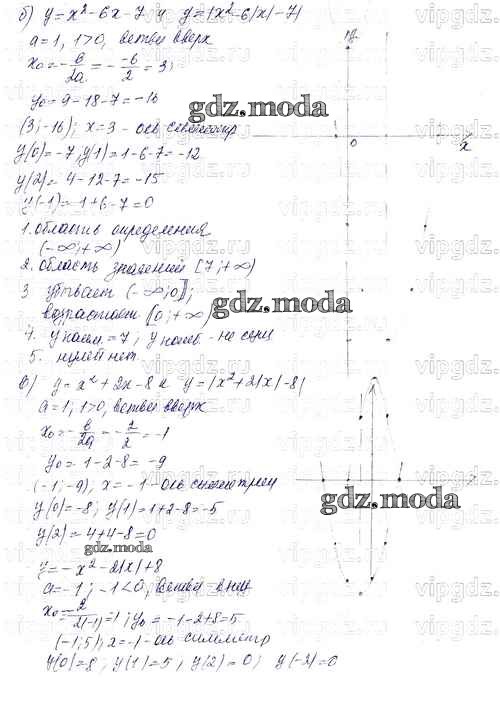 б) y=x²-6x-7 и y=|x²-6|x|-7|
a=1, 1>0, ветви вверх
x₀=-b/2a=-(-6)/2=3;
y₀=9-18-7=-16
(3;-16); x=3-ось симметр
y(0)=-7, y(1)=1-6-7=-12
y(2)=4-12-7=-15
y(-1)=1+6-7=0
1. область определения
(-∞;+∞)
2. область значений [7;+∞)
3 убывает (-∞;0];
возрастает [0;+∞)
4. y наим.=7; y наиб.-не сущ
5. нулей нет.
в) y=x²+2x-8 и y=|x²+2|x|-8|
a=1; 1>0, ветви вверх
x₀=-b/2a=-2/2=-1
y₀=1-2-8=-9
(-1;-9); x=-1-ось симметрии
y(0)=-8; y(1)=1+2-8=-5
y(2)=4+4-8=0
y=-x²-2|x|+8
a=-1; -1<0, ветви вниз
x₀=2/2(-1)=1; y₀=-1-2+8=5
(-1;5); x=-1-ось симметр
y(0)=8; y(1)=5; y(2)=0; y(-2)=0
y
0
x
gdz.moda
gdz.moda
gdz.moda
gdz.moda
vipgdz.ru